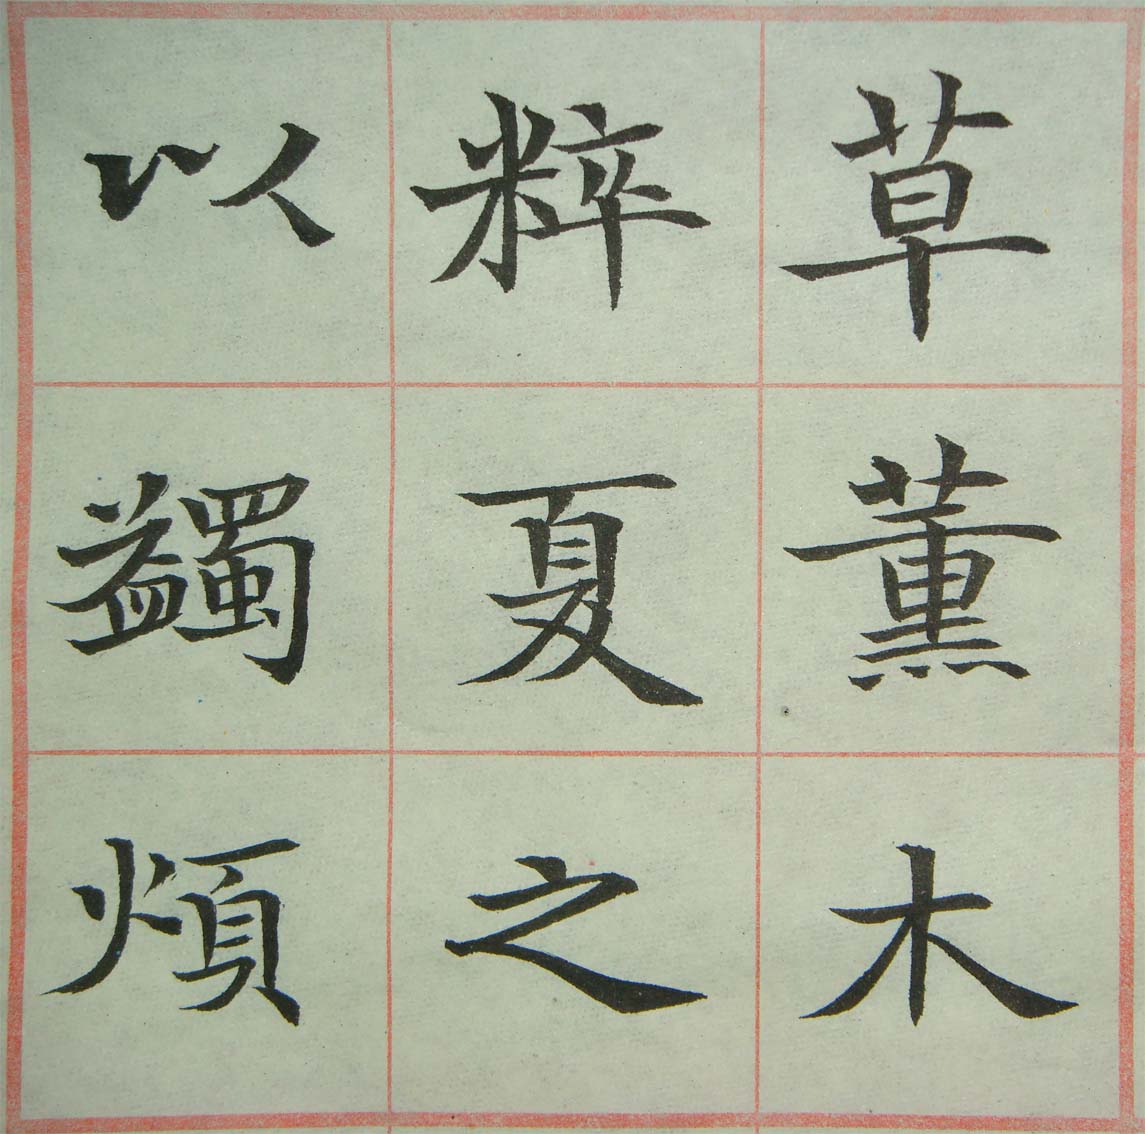 草薰木
粹夏之
以蠲煩